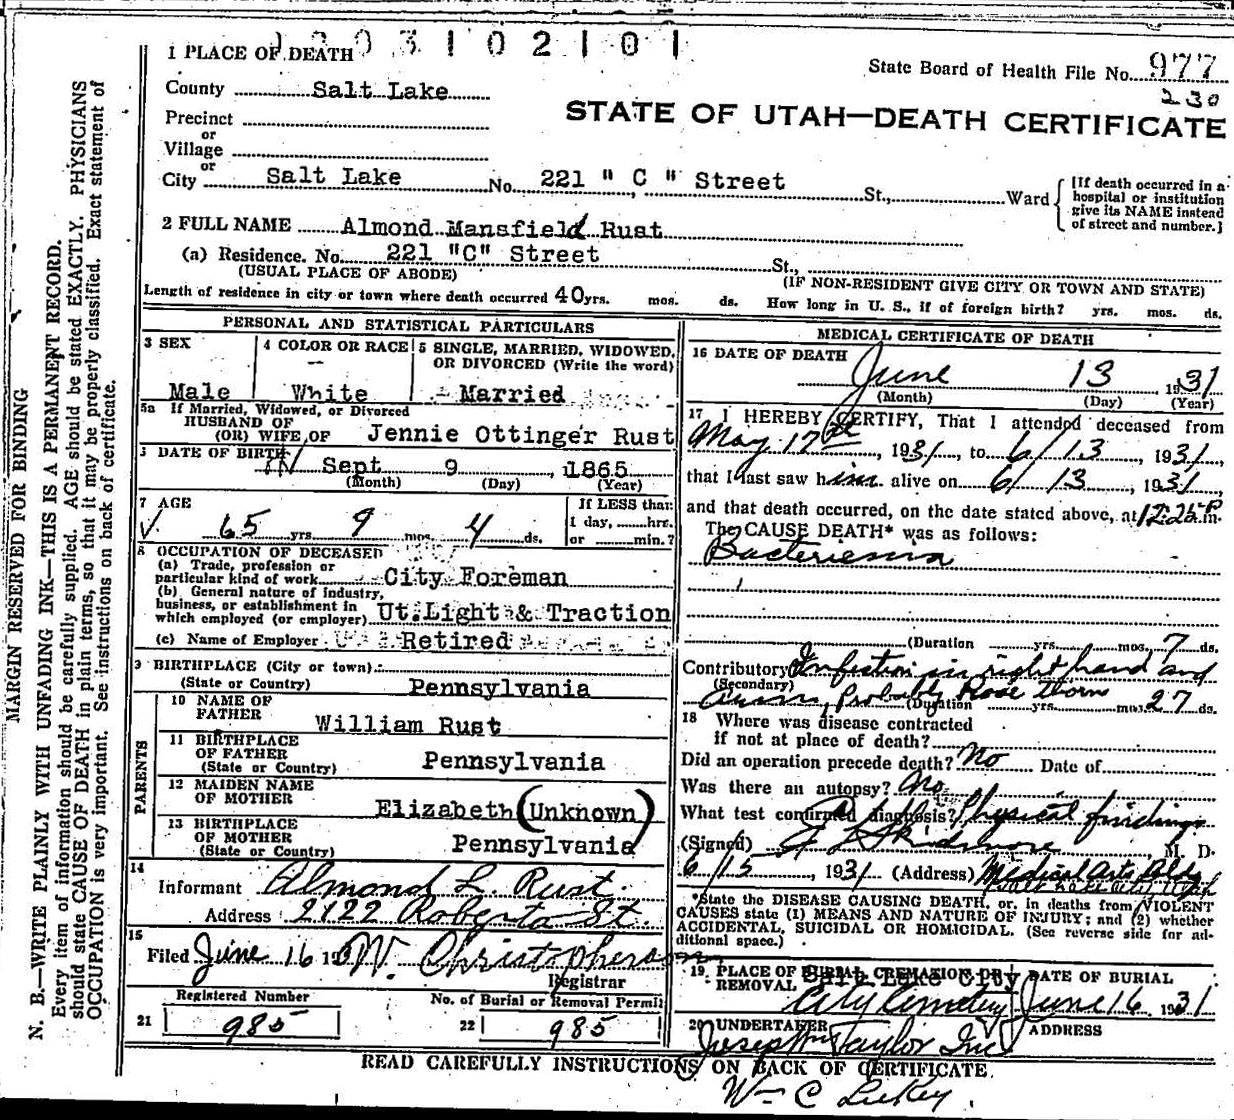 1 PLACE OF DEATH
State Board of Health File No. 977
230
County Salt Lake
STATE OF UTAH—DEATH CERTIFICATE
Precinct
or
Village
or
City Salt Lake No. 221 " C " Street St., Ward
[If death occurred in a hospital or institution give its NAME instead of street and number.]
2 FULL NAME Almond Mansfield Rust
(a) Residence. No. 221 "C" Street St.,
(USUAL PLACE OF ABODE) (IF NON-RESIDENT GIVE CITY OR TOWN AND STATE)
Length of residence in city or town where death occurred 40 yrs. mos. ds. How long in U. S., if of foreign birth? yrs. mos. ds.
PERSONAL AND STATISTICAL PARTICULARS
3 SEX
Male
4 COLOR OR RACE
White
5 SINGLE, MARRIED, WIDOWED, OR DIVORCED (Write the word)
Married
5a If Married, Widowed, or Divorced
HUSBAND OF
(OR) WIFE OF Jennie Ottinger Rust
DATE OF BIRTH Sept 9, 1865
(Month) (Day) (Year)
7 AGE
65 yrs. 9 mos. 4 ds.
If LESS than
1 day, hrs.
or min.?
8 OCCUPATION OF DECEASED
(a) Trade, profession or
particular kind of work City Foreman
(b) General nature of industry,
business, or establishment in
which employed (or employer) Ut. Light & Traction
(c) Name of Employer Retired
9 BIRTHPLACE (City or town)
(State or Country) Pennsylvania
PARENTS
10 NAME OF
FATHER William Rust
11 BIRTHPLACE
OF FATHER Pennsylvania
(State or Country)
12 MAIDEN NAME
OF MOTHER Elizabeth (Unknown)
13 BIRTHPLACE
OF MOTHER Pennsylvania
(State or Country)
14
Informant Almond L. Rust
Address 2122 Roberta St.
15
Filed June 16 W. Christopherson
Registrar
Registered Number
21 985
No. of Burial or Removal Permit
22 985
MEDICAL CERTIFICATE OF DEATH
16 DATE OF DEATH
June 13 1931
(Month) (Day) (Year)
17 I HEREBY CERTIFY, That I attended deceased from
May 17th, 1931, to 6/13, 1931,
that I last saw him alive on 6/13, 1931,
and that death occurred, on the date stated above, at 12:25 P m.
The CAUSE DEATH* was as follows:
Bacteriemia
(Duration yrs. mos. 7 ds.
Contributory Infection in right hand and
(Secondary) arm, Probably Rose thorn
(Duration yrs. mos. 27 ds.
18 Where was disease contracted
if not at place of death?
Did an operation precede death? No Date of
Was there an autopsy? No
What test confirmed diagnosis? Physical findings
(Signed) Skidmore M. D.
6/15, 1931 (Address) Medical Arts Bldg
Salt Lake City Utah
*State the DISEASE CAUSING DEATH, or, in deaths from VIOLENT
CAUSES state (1) MEANS AND NATURE OF INJURY; and (2) whether
ACCIDENTAL, SUICIDAL OR HOMICIDAL. (See reverse side for ad-
ditional space.)
19 PLACE OF BURIAL, CREMATION OR REMOVAL
Salt Lake City
City Cemetery
DATE OF BURIAL
June 16 1931
20 UNDERTAKER
Joseph Wm Taylor Inc
ADDRESS
READ CAREFULLY INSTRUCTIONS ON BACK OF CERTIFICATE
Wm C Luckey.
MARGIN RESERVED FOR BINDING
N. B.—WRITE PLAINLY WITH UNFADING INK—THIS IS A PERMANENT RECORD.
Every item of information should be carefully supplied. AGE should be stated EXACTLY. PHYSICIANS
should state CAUSE OF DEATH in plain terms, so that it may be properly classified. Exact statement of
OCCUPATION is very important. See instructions on back of certificate.